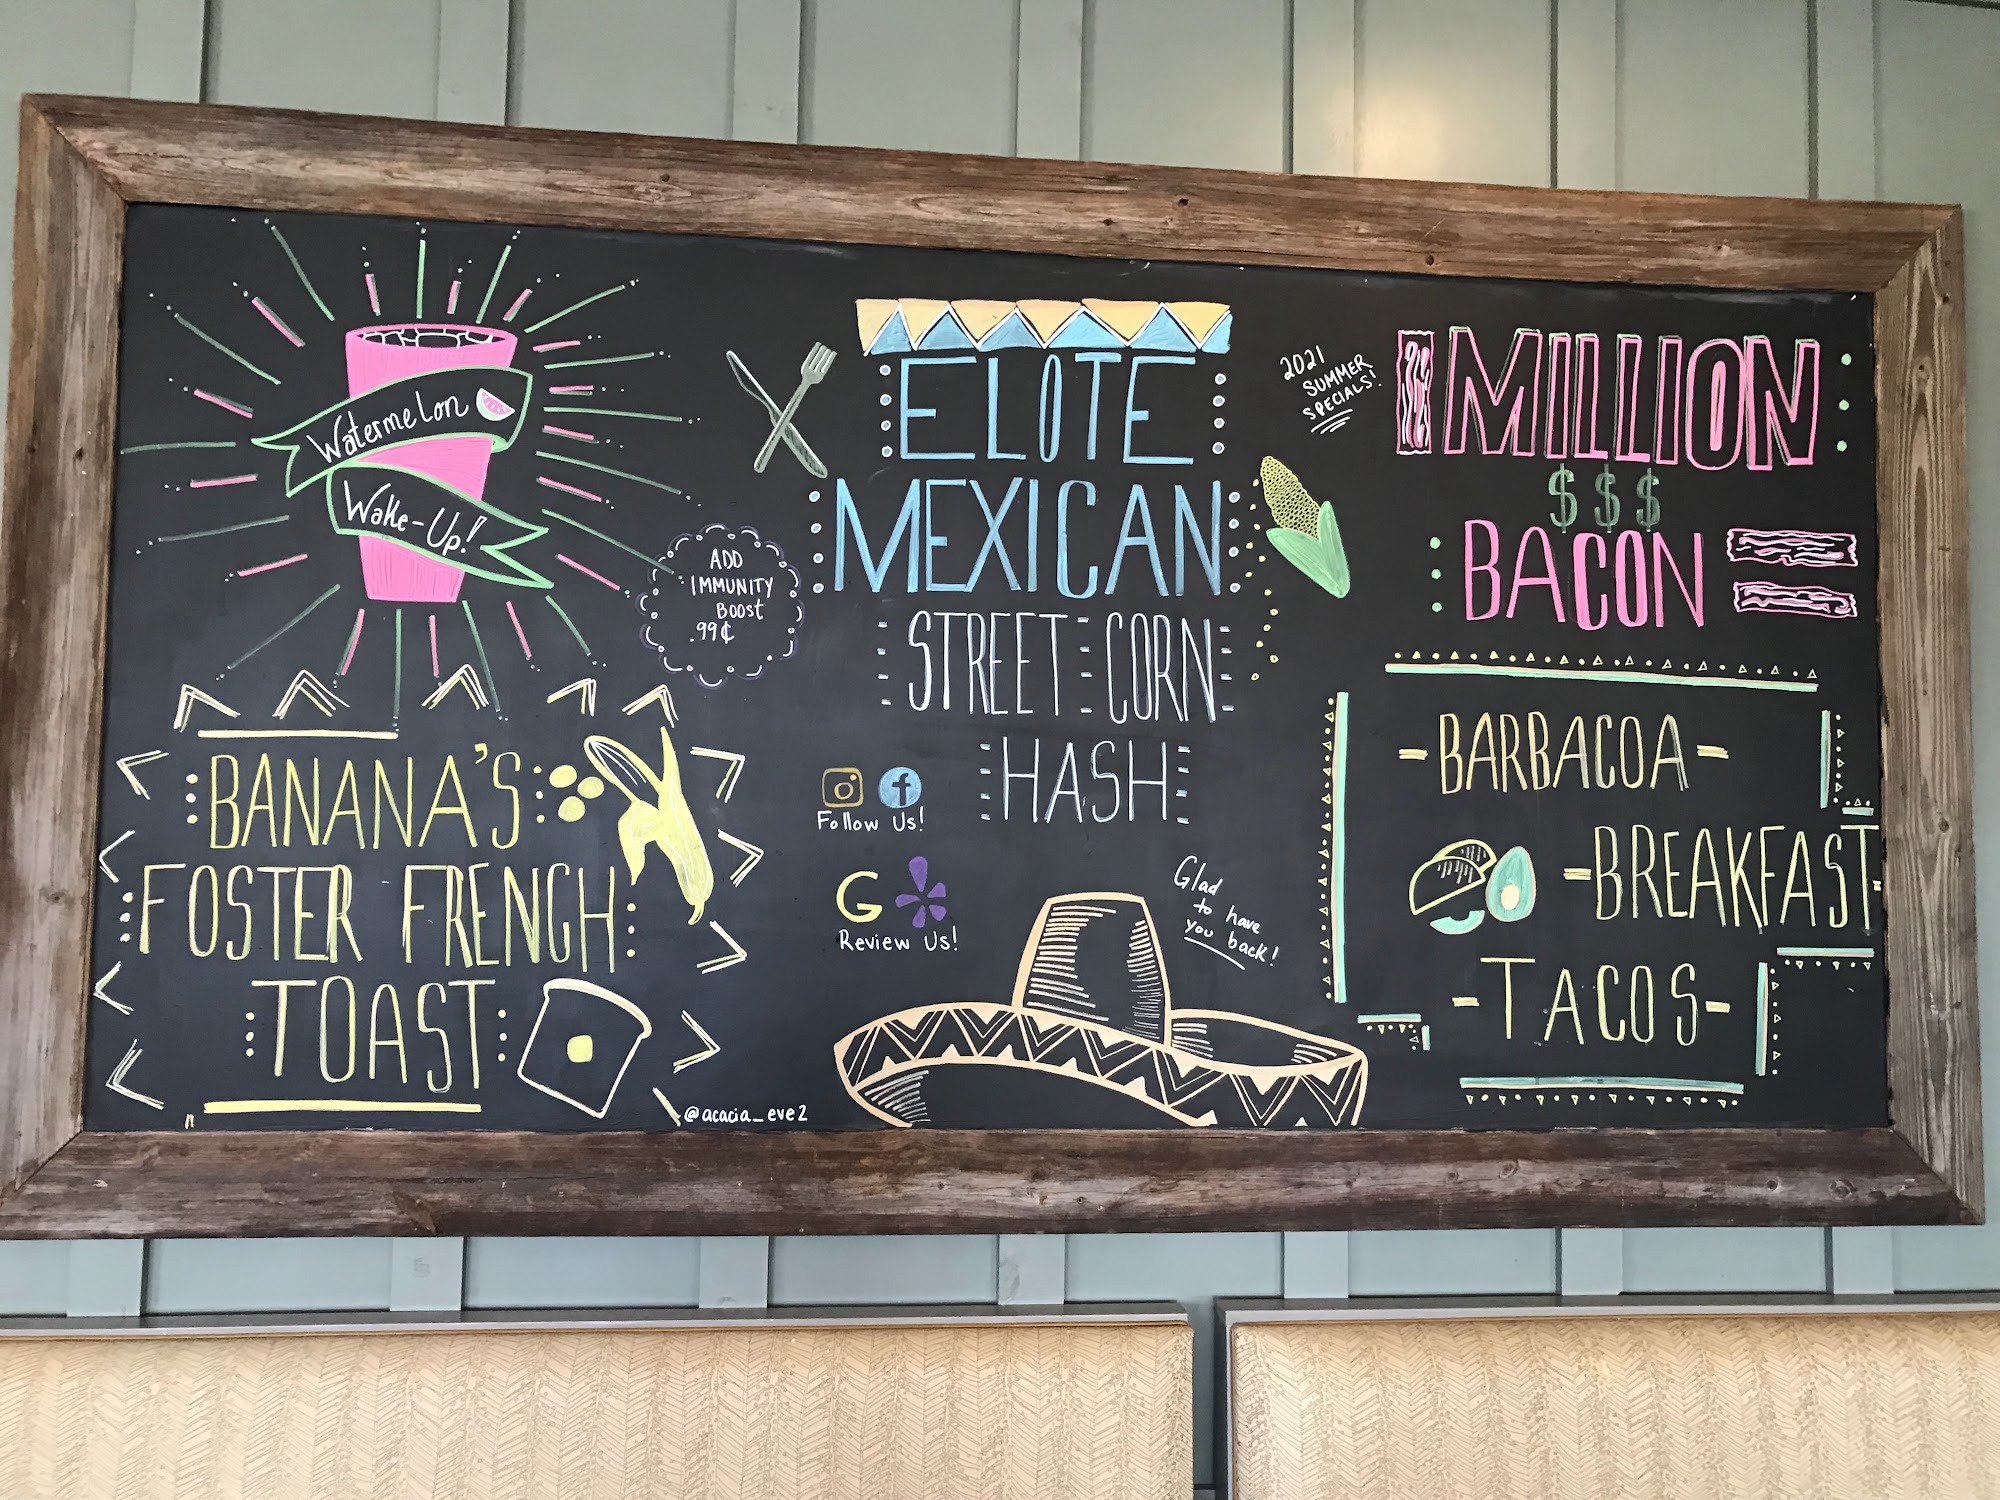 Watermelon
Wake-Up!
ADD
IMMUNITY
BOOST
.99¢
BANANA'S
FOSTER FRENCH
TOAST
@acacia_eve2
ELOTE
MEXICAN
STREET CORN
HASH
Follow Us!
G
Review Us!
Glad
to have
you back!
2021
SUMMER
SPECIALS!
MILLION
$ $ $
BACON
-BARBACOA-
-BREAKFAST-
-TACOS-